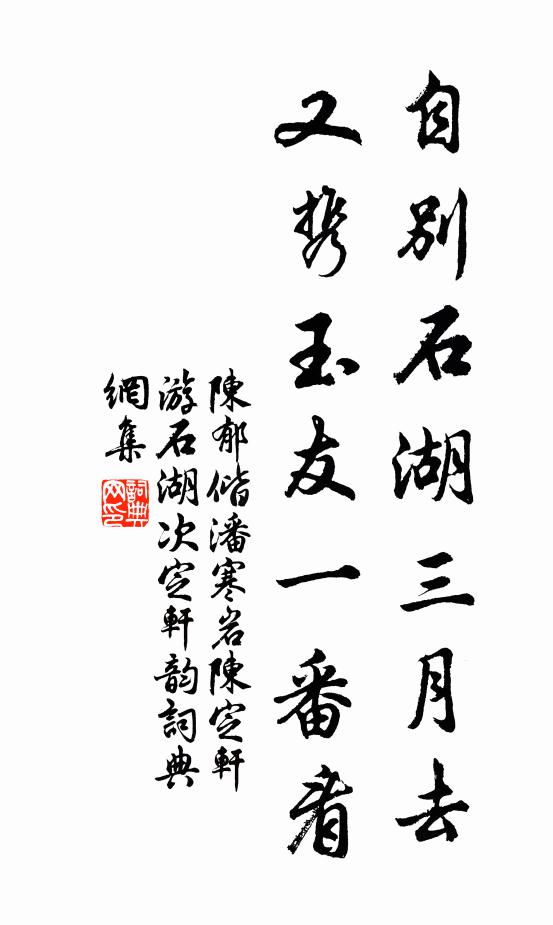 自别石湖三月去
又携玉友一番看
陳郁偕潘寒岩陳定軒
游石湖次定軒韵詞典
網集
詞典網印